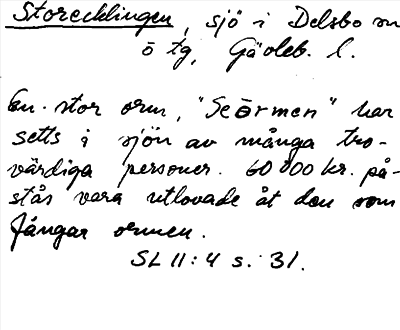 Storecklingen, sjö i Delsbo sn
ö tg, Gävleb. l.
En stor orm, "Seormen" har
setts i sjön av många tro-
värdiga personer. 60 000 kr. på-
stås vara utlovade åt den som
fångar ormen.
SL 11:4 s. 31.